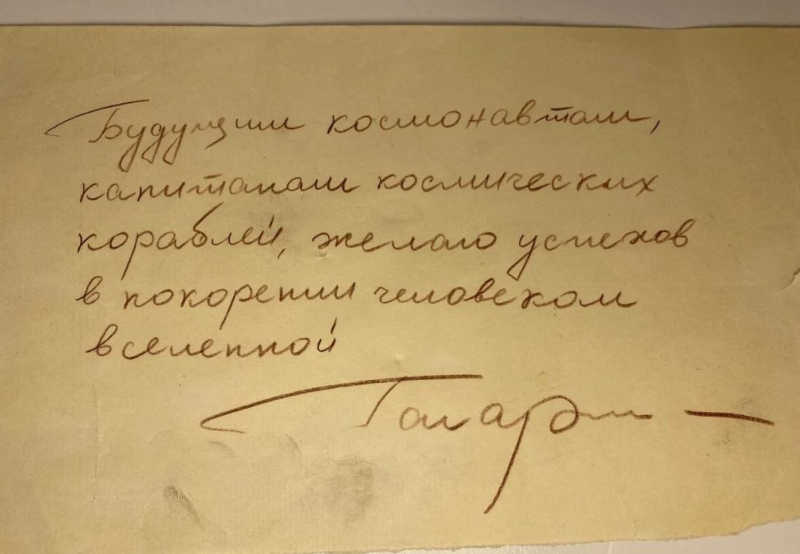 Будущим космонавтам,
капитанам космических
кораблей, желаю успехов
в покорении человеком
вселенной
Гагарин